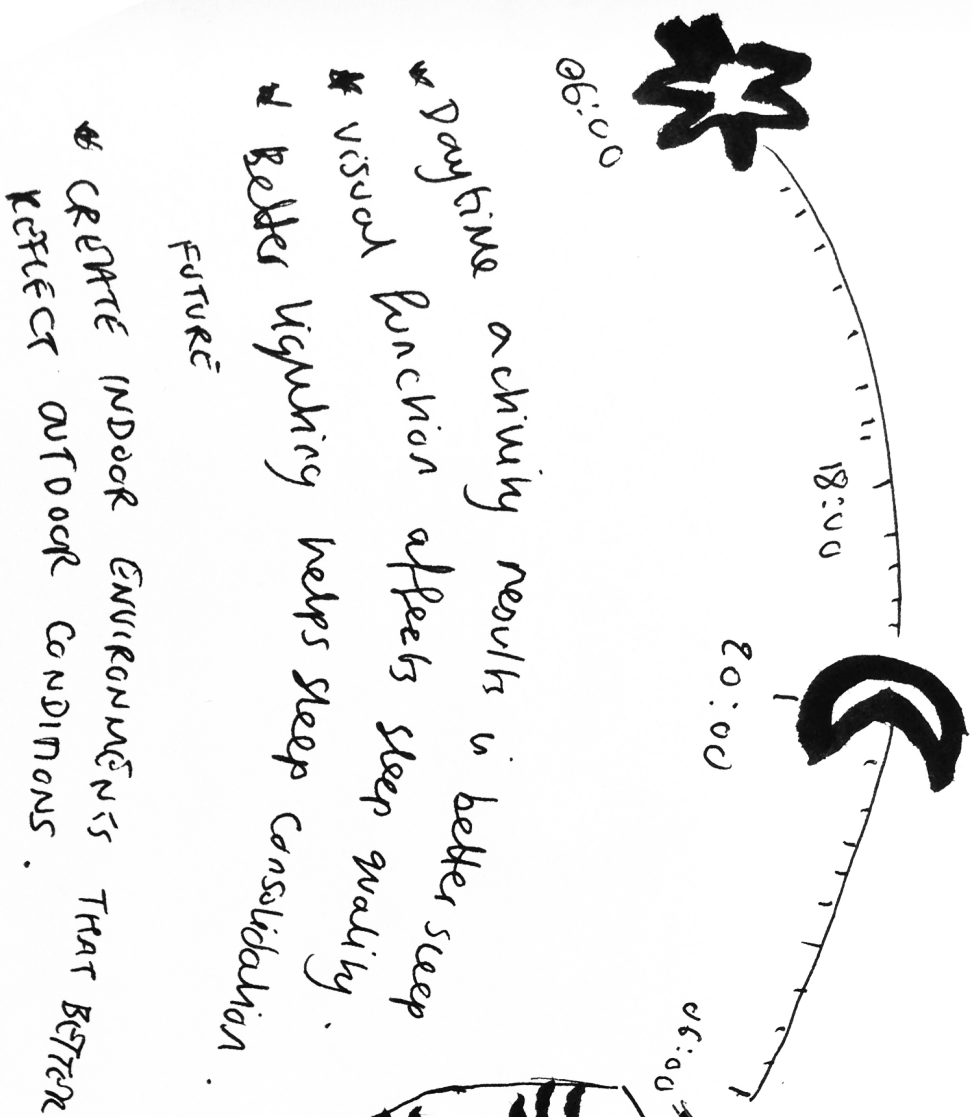 06:00
18:00
20:00
06:00
* Daytime activity results in better sleep
* Visual function affects sleep quality.
* Better lighting helps sleep consolidation.
FUTURE
* CREATE INDOOR ENVIRONMENTS THAT BETTER
REFLECT OUTDOOR CONDITIONS.